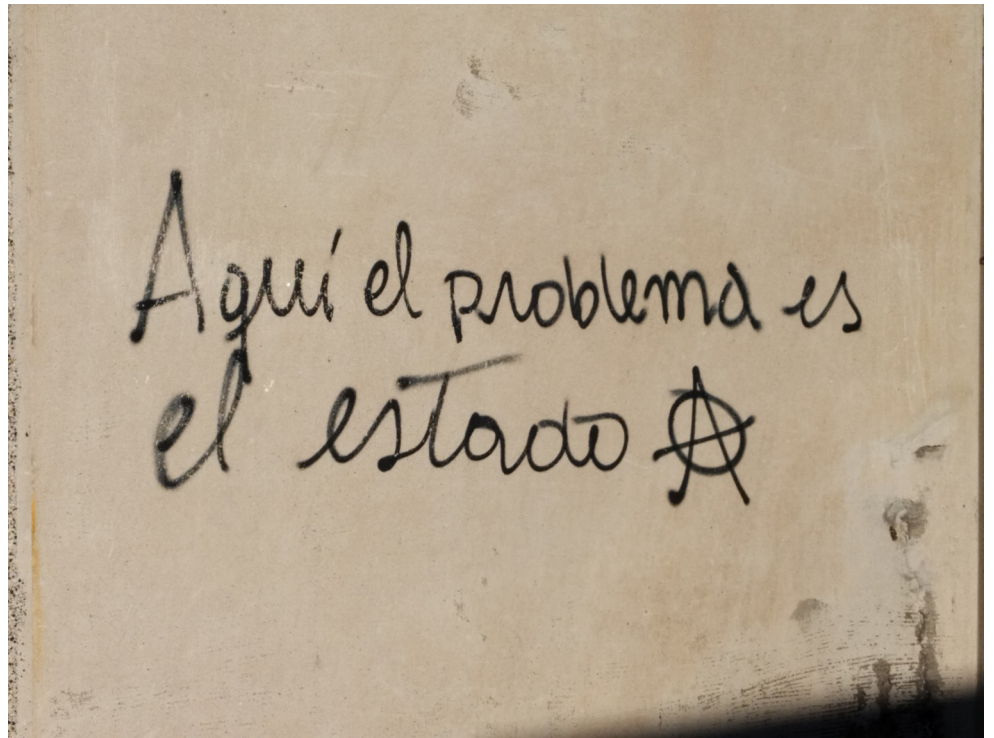 Aquí el problema es
el estado Ⓐ